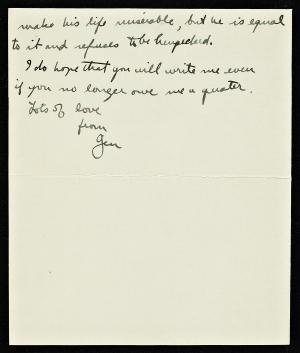 make his life miserable, but he is equal
to it and refuses to be henpecked.
I do hope that you will write me even
if you no longer owe me a quater.
Lots of love
from
Gen